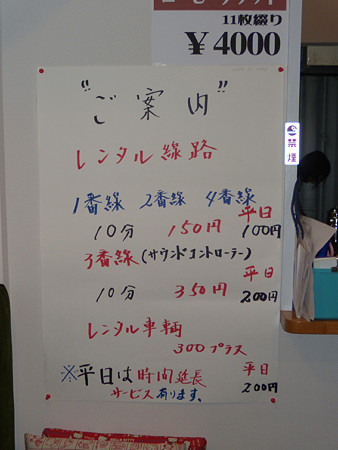 11枚綴り
￥4000
"ご案内"
レンタル線路
1番線 2番線 4番線
平日
10分 150円 100円
3番線(サウンドコントローラー)
平日
10分 350円 200円
レンタル車輌
300プラス
平日
※平日は時間延長 200円
サービス有ります。
禁煙